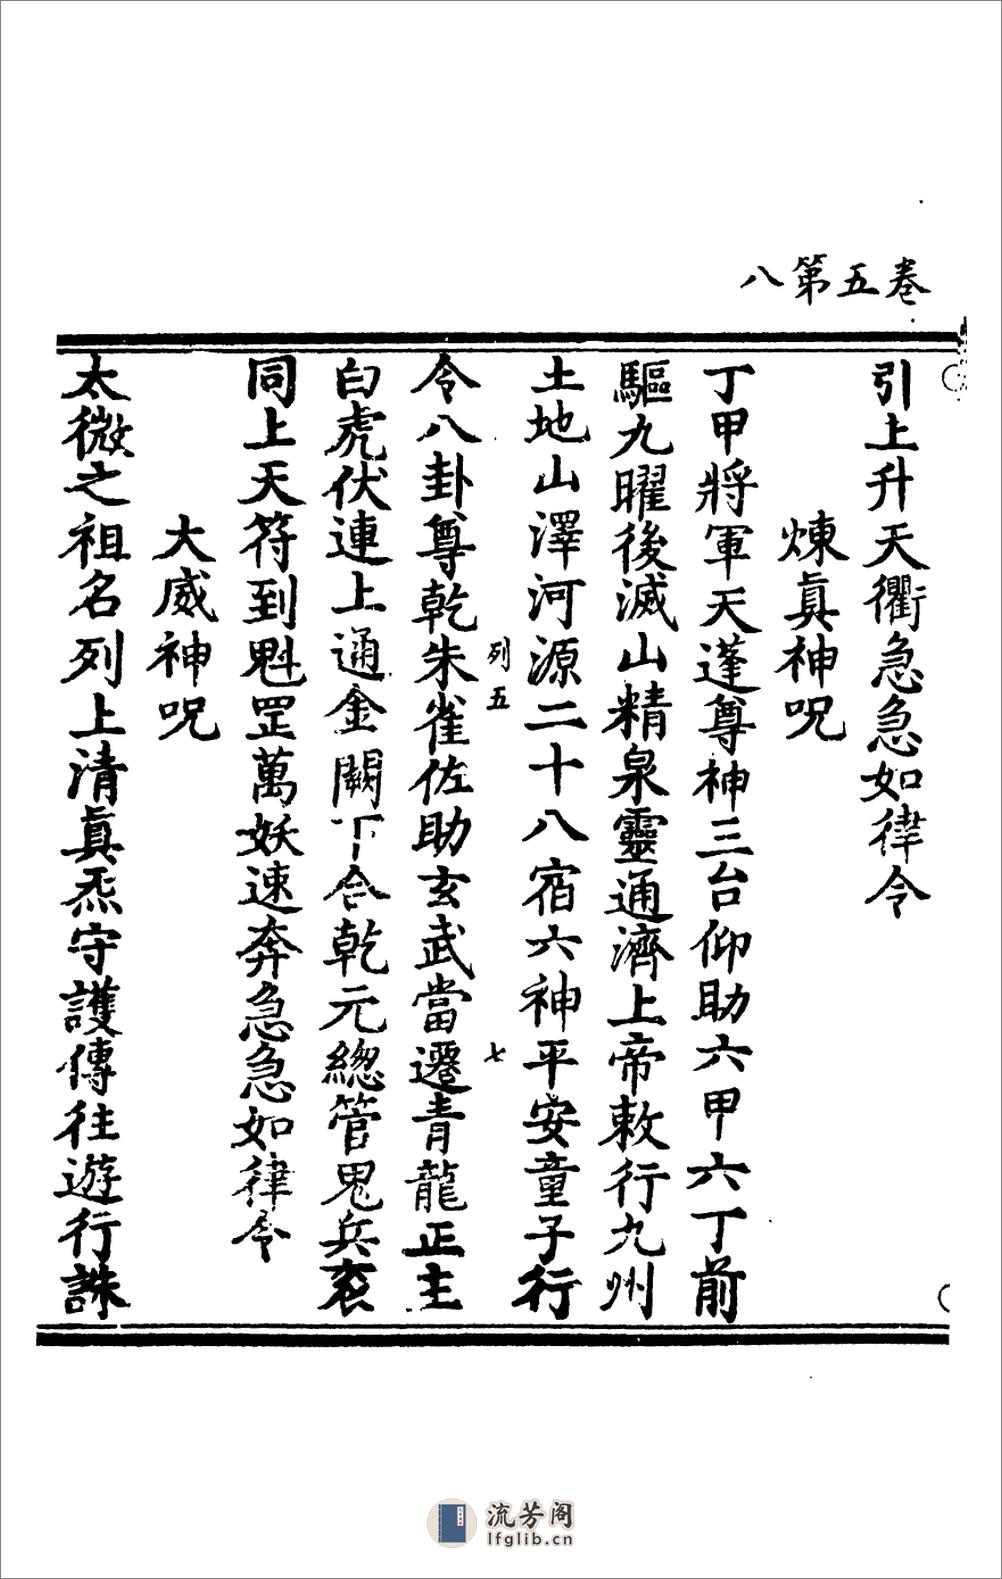 卷五第八
引上升天衢急急如律令
煉眞神呪
丁甲將軍天蓬尊神三台仰助六甲六丁前
驅九曜後滅山精泉靈通濟上帝敕行九州
土地山澤河源二十八宿六神平安童子行
列五 七
令八卦尊乾朱雀佐助玄武當遷青龍正主
白虎伏連上通金闕下合乾元總管鬼兵衮
同上天符到魁罡萬妖速奔急急如律令
大威神呪
太微之祖名列上清眞炁守護傳往遊行誅
流芳阁
lfglib.cn